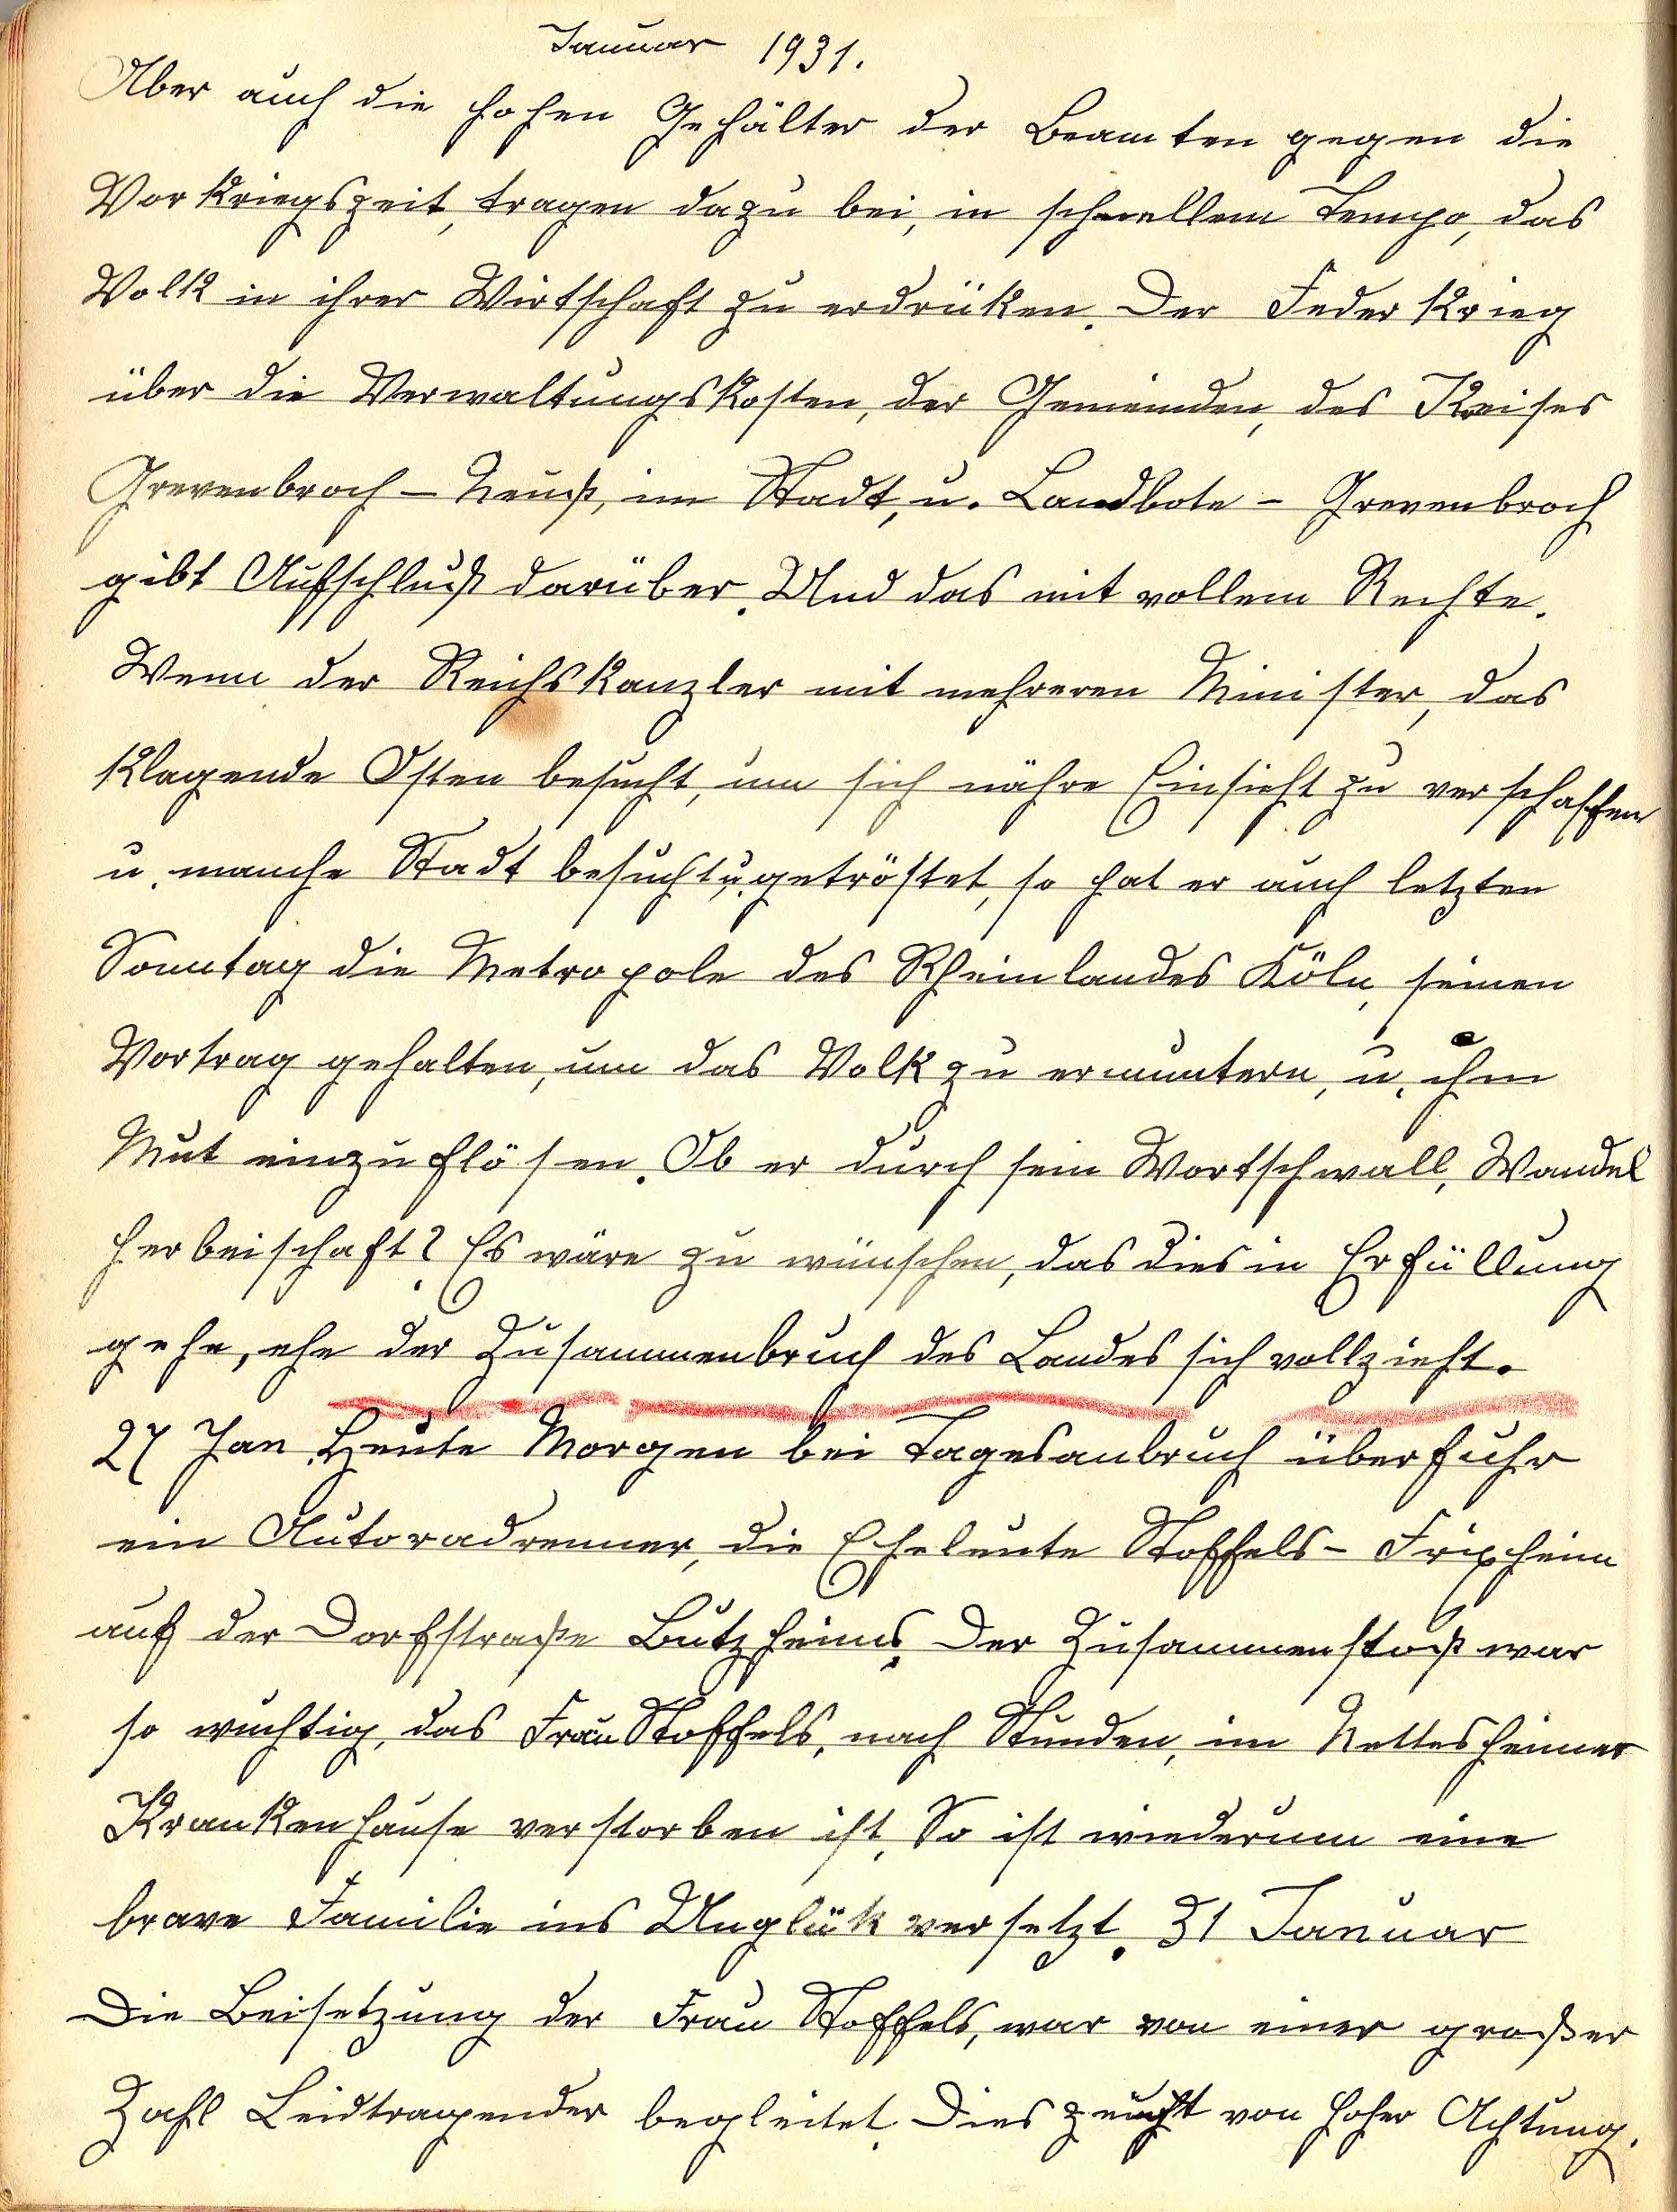 Januar 1931.
Aber auch die hohen Gehälter der Beamten gegen die
Vorkriegszeit, tragen dazu bei, in schnellem Tempo, das
Volk in ihrer Wirtschaft zu erdrüken. Der Federkrieg
über die Verwaltungskosten, der Gemeinden, des Kreises
Grevenbroch - Neuß, im Stadt, u. Landbote - Grevenbroch
gibt Aufschluß darüber. Und das mit vollem Rechte.
Wenn der Reichskanzler mit mehreren Minister, das
klagende Osten besucht, um sich nähre Einsicht zu verschaffen
u. manche Stadt besucht, u. getröstet, so hat er auch letzten
Sonntag die Metropole des Rheinlandes Köln, seinen
Vortrag gehalten, um das Volk zu ermuntern, u. ihm
Mut einzuflösen. Ob er durch sein Wortschwall, Wandel
herbeischaft? Es wäre zu wünschen, das dies in Erfüllung
gehe, ehe der Zusammenbruch des Landes sich vollzieht.
27 Jan. Heute Morgen bei Tagesanbruch überfuhr
ein Autoradrenner, die Eheleute Stoffels - Frixheim
auf der Dorfstraße Butzheims. Der Zusammenstoß war
so wuchtig, das Frau Stoffels, nach Stunden, im Nettesheimer
Krankenhause verstorben ist. So ist wiederum eine
brave Familie ins Unglük versetzt. 31 Januar
Die Beisetzung der Frau Stoffels, war von einer großer
Zahl Leidtragender begleitet. Dies zeucht von hoher Achtung.